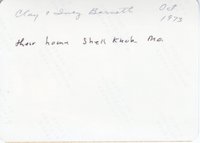 Clay & Inez Barnett Oct
1973
their home Shell Knob Mo.